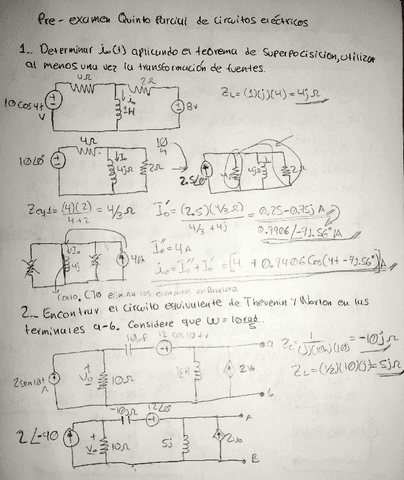 Pre-examen Quinto Parcial de Circuitos eléctricos
1.- Determinar io(t) aplicando el teorema de Superpocisición, utilizar
al menos una vez la transformación de fuentes.
4Ω 2Ω
10cos4t V io 1H 8v ZL=(1)(j)(4)=4jΩ
4Ω
10∟0° Io 4jΩ 2Ω 2.5∟0° 4jΩ 2Ω
Zeq1=(4)(2)/4+2=4/3Ω Io'=(2.5)(4/3Ω)/4/3+4j=0.25-0.75jA
0.7906/-71.56°A
Io 4j 4A Io''=4A
io=Io''+Io'=[4+0.7906Cos(4t-71.56°)]A
2.- Encontrar el circuito equivalente de Thevenin y Norton en las
terminales a-b. Considere que W=10rad/s.
10mF 12cos10t v a
2sen10t A + Vo - 10Ω 1/2H 2vo b
ZL=(1/2)(10)(j)=5jΩ
-10jΩ 12∟0 A
2∟-90 + Vo - 10Ω 5j 2vo B